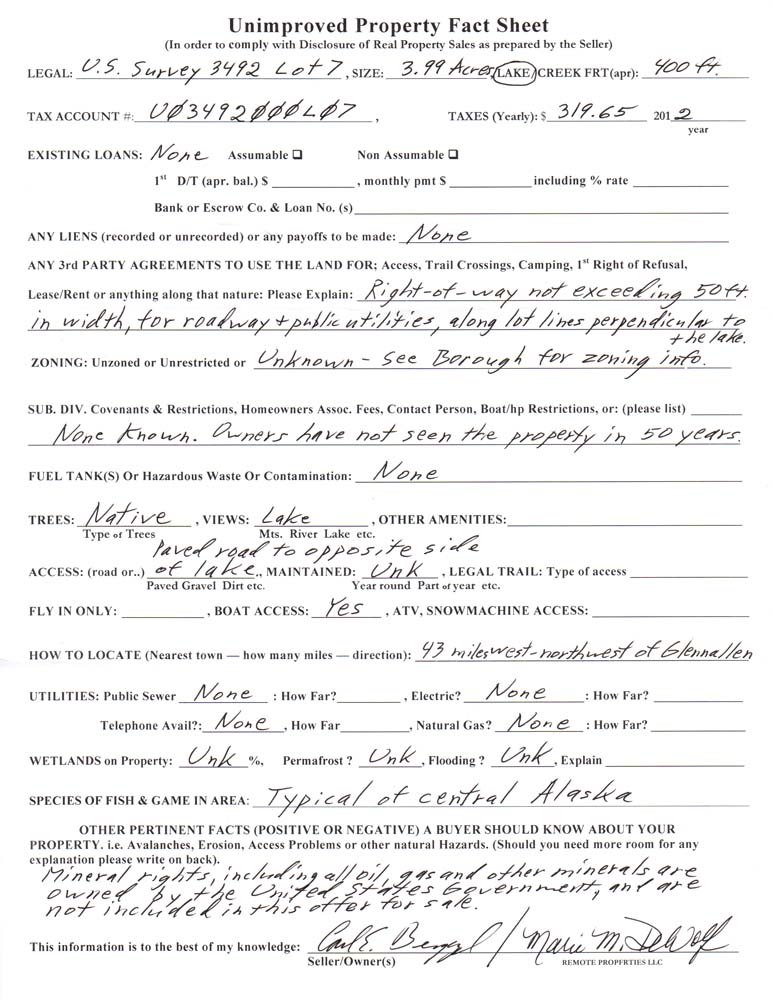 Unimproved Property Fact Sheet
(In order to comply with Disclosure of Real Property Sales as prepared by the Seller)
LEGAL: U.S. Survey 3492 Lot 7, SIZE: 3.99 Acres/LAKE/CREEK FRT(apr): 400 ft.
TAX ACCOUNT #: UØ3492ØØØLØ7, TAXES (Yearly): $ 319.65 2012
year
EXISTING LOANS: None Assumable ❑ Non Assumable ❑
1st D/T (apr. bal.) $ ____________, monthly pmt $ ____________ including % rate ____________
Bank or Escrow Co. & Loan No. (s)____________
ANY LIENS (recorded or unrecorded) or any payoffs to be made: None
ANY 3rd PARTY AGREEMENTS TO USE THE LAND FOR; Access, Trail Crossings, Camping, 1st Right of Refusal,
Lease/Rent or anything along that nature: Please Explain: Right-of-way not exceeding 50 ft.
in width, for roadway + public utilities, along lot lines perpendicular to
the lake.
ZONING: Unzoned or Unrestricted or Unknown - See Borough for zoning info.
SUB. DIV. Covenants & Restrictions, Homeowners Assoc. Fees, Contact Person, Boat/hp Restrictions, or: (please list) ________
None Known. Owners have not seen the property in 50 years.
FUEL TANK(S) Or Hazardous Waste Or Contamination: None
TREES: Native, VIEWS: Lake, OTHER AMENITIES:____________
Type of Trees Mts. River Lake etc.
Paved road to opposite side
ACCESS: (road or..) of lake., MAINTAINED: Unk, LEGAL TRAIL: Type of access ____________
Paved Gravel Dirt etc. Year round Part of year etc.
FLY IN ONLY: ____________, BOAT ACCESS: Yes, ATV, SNOWMACHINE ACCESS: ____________
HOW TO LOCATE (Nearest town — how many miles — direction): 43 miles west-northwest of Glennallen
UTILITIES: Public Sewer None : How Far?________, Electric? None : How Far? ________
Telephone Avail?: None, How Far________, Natural Gas? None : How Far? ________
WETLANDS on Property: Unk %, Permafrost ? Unk, Flooding ? Unk, Explain ____________
SPECIES OF FISH & GAME IN AREA: Typical of central Alaska
OTHER PERTINENT FACTS (POSITIVE OR NEGATIVE) A BUYER SHOULD KNOW ABOUT YOUR
PROPERTY. i.e. Avalanches, Erosion, Access Problems or other natural Hazards. (Should you need more room for any
explanation please write on back).
Mineral rights, including all oil, gas and other minerals are
owned by the United States Government, and are
not included in this offer for sale.
This information is to the best of my knowledge: Carl E. / Marie M. DeWolf
Seller/Owner(s) REMOTE PROPERTIES LLC